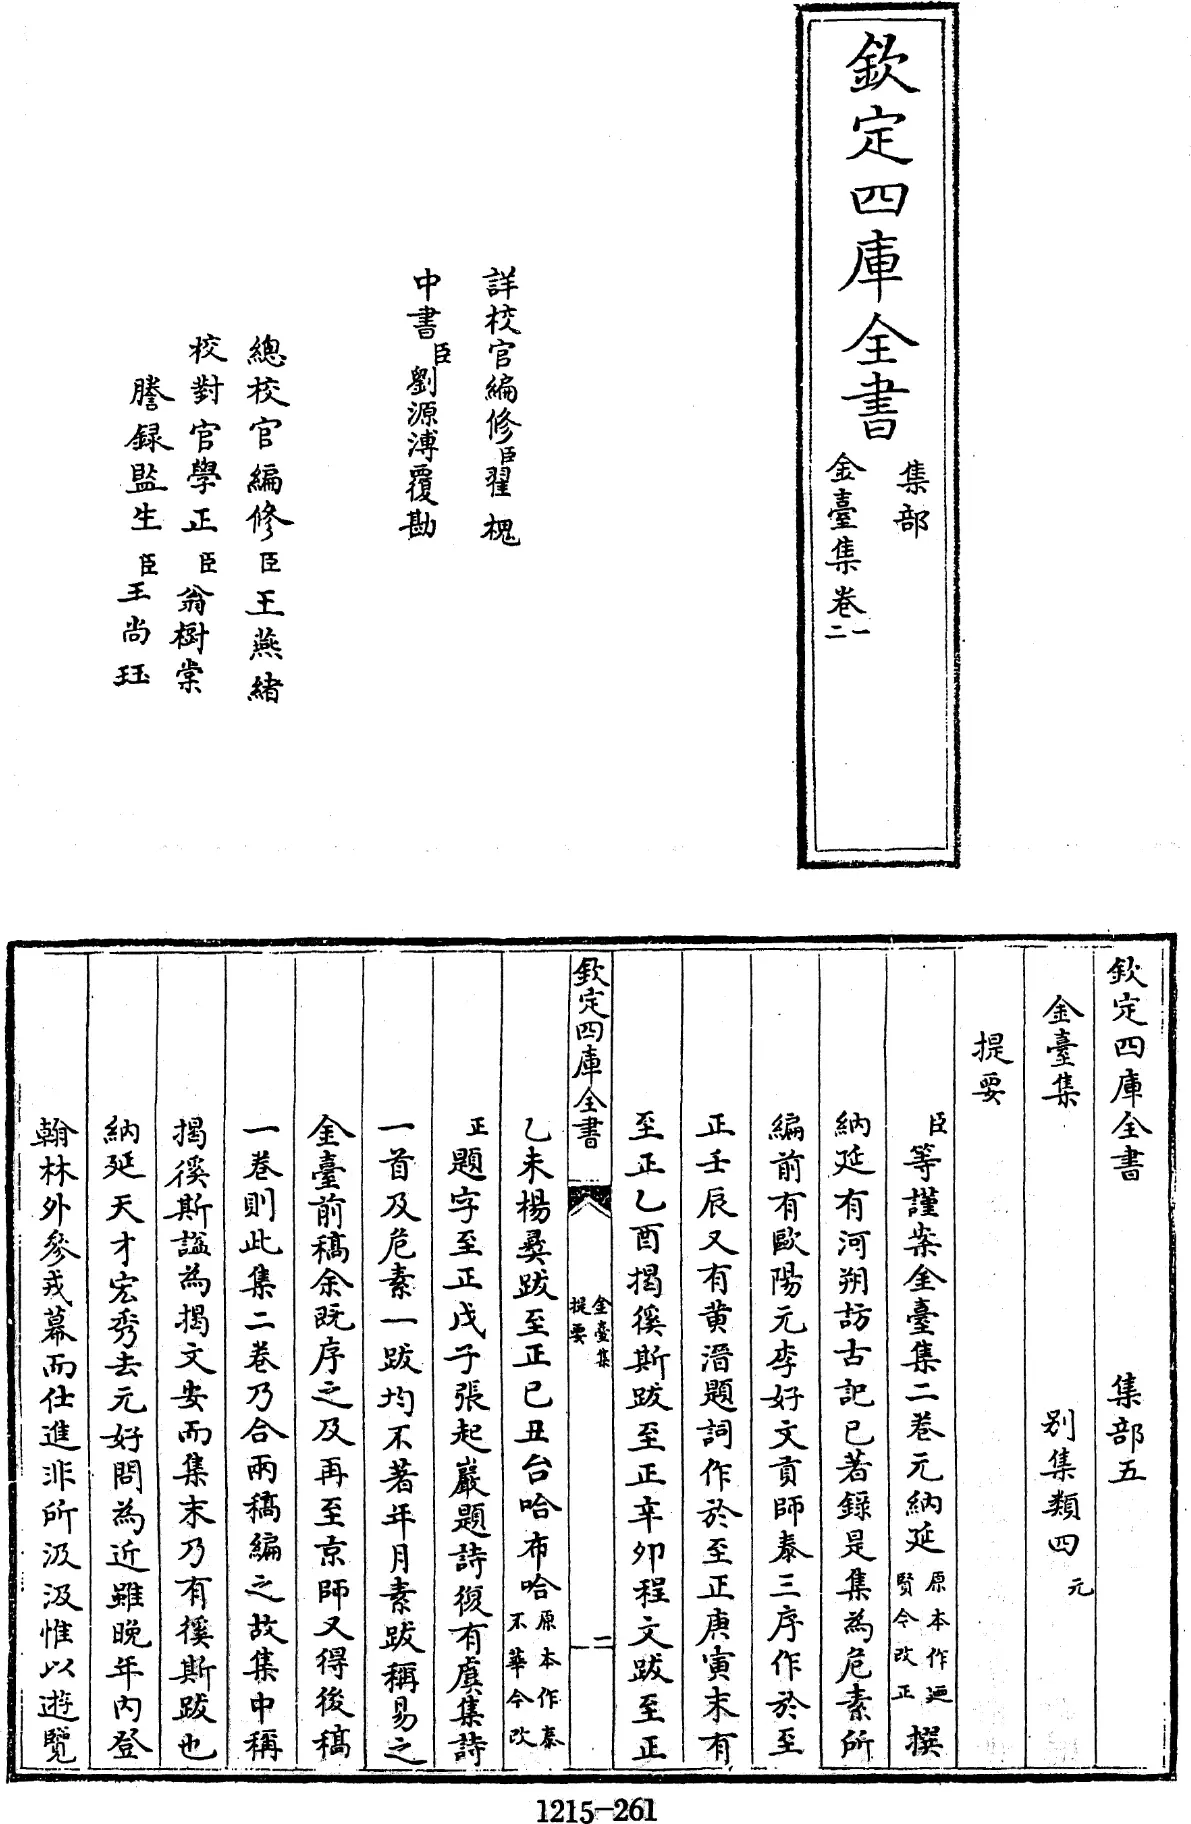 欽定四庫全書
集部
金臺集卷一
二
詳校官編修臣翟槐
中書臣劉源溥覆勘
總校官編修臣王燕緒
校對官學正臣翁樹棠
謄録監生臣王尚珏
欽定四庫全書 集部五
金臺集 别集類四 元
提要
臣等謹案金臺集二卷元納延原本作迺賢今改正撰
納延有河朔訪古記已著錄是集為危素所
編前有歐陽元李好文貢師泰三序作於至
正壬辰又有黄溍題詞作於至正庚寅末有
至正乙酉揭徯斯跋至正辛卯程文跋至正
欽定四庫全書 金臺集提要 一 二
乙未楊彝跋至正已丑台哈布哈原本作泰不華今改
正題字至正戊子張起巖題詩復有虞集詩
一首及危素一跋均不著年月素跋稱易之
金臺前稿余既序之及再至京師又得後稿
一卷則此集二卷乃合兩稿編之故集中稱
揭徯斯諡為揭文安而集末乃有徯斯跋也
納延天才宏秀去元好問為近雖晚年内登
翰林外參戎幕而仕進非所汲汲惟以遊覽
1215-261